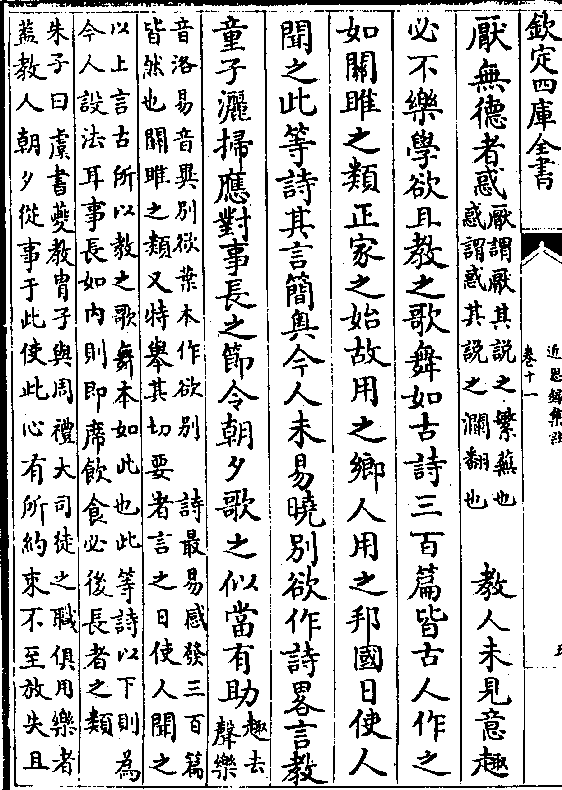 欽定四庫全書
近思録集註
卷十一
五
厭無德者惑
厭謂厭其說之繁蕪也
惑謂惑其說之瀾翻也
教人未見意趣
必不樂學欲且教之歌舞如古詩三百篇皆古人作之
如關雎之類正家之始故用之鄉人用之邦國日使人
聞之此等詩其言簡奥今人未易曉别欲作詩畧言教
童子灑掃應對事長之節令朝夕歌之似當有助
趣去
聲樂
音洛易音異别欲葉本作欲别　詩最易感發三百篇
皆然也關雎之類又特舉其切要者言之日使人聞之
以上言古所以教之歌舞本如此也此等詩以下則為
今人設法耳事長如内則即席飲食必後長者之類
朱子曰虞書夔教胄子與周禮大司徒之職俱用樂者
蓋教人朝夕從事于此使此心有所約束不至放失且